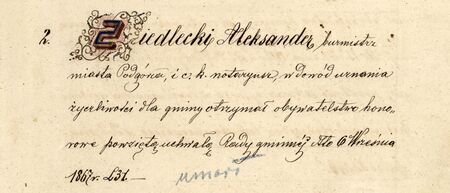 2. Żudlecki Aleksander, burmistrz
miasta Podgórza, i c. k. notaryusz, w dowód uznania
życzliwości dla gminy otrzymał obywatelstwo hono-
rowe powziętą uchwałą Rady gminnéj dto 6 Września
1867 r. L 31 —
umarł